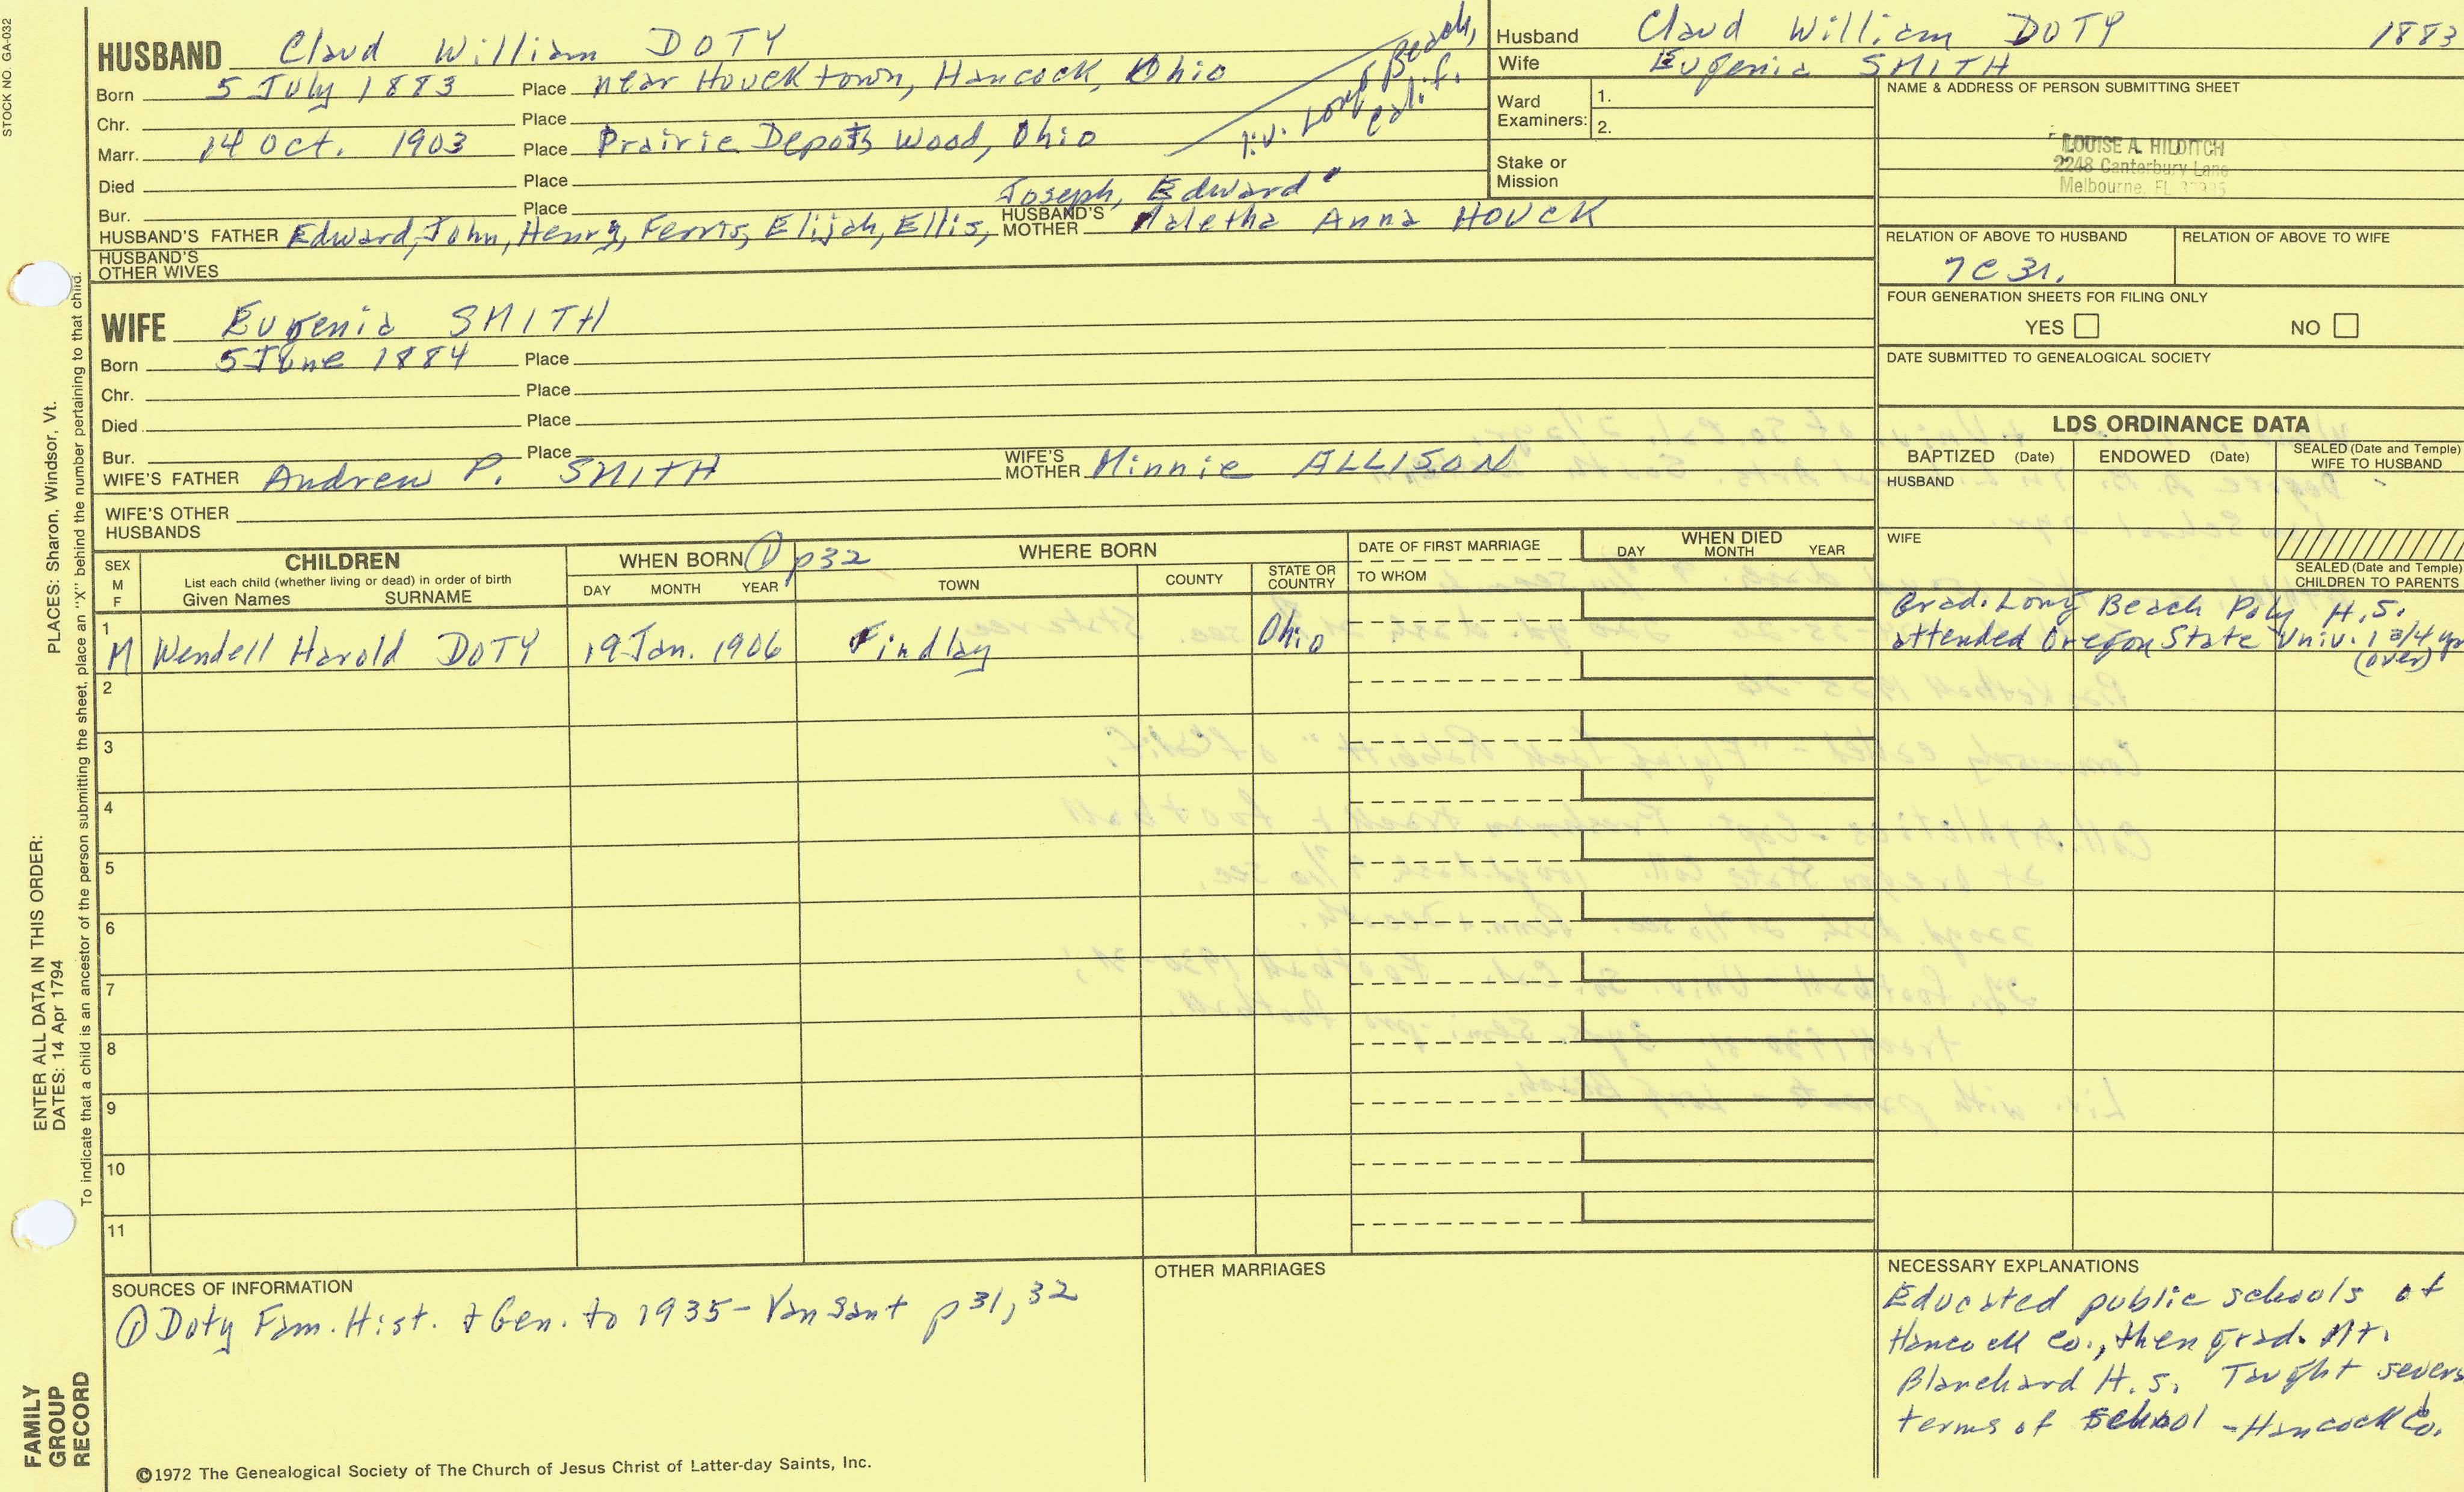 STOCK NO. GA-032
HUSBAND Claud William DOTY
Born 5 July 1883 Place near Houcktown, Hancock, Ohio
Chr. Place
Marr. 14 Oct. 1903 Place Prairie Depot, Wood, Ohio
liv. Long Beach, Calif.
Died Place
Bur. Place
Joseph, Edward
HUSBAND'S FATHER Edward, John, Henry, Ferris, Elijah, Ellis, HUSBAND'S MOTHER Maletha Anna HOUCK
HUSBAND'S OTHER WIVES
WIFE Eugenia SMITH
Born 5 June 1884 Place
Chr. Place
Died Place
Bur. Place
WIFE'S FATHER Andrew P. SMITH WIFE'S MOTHER Minnie ALLISON
WIFE'S OTHER HUSBANDS
Husband Claud William DOTY 1883
Wife Eugenia SMITH
Ward Examiners: 1.
2.
Stake or Mission
NAME & ADDRESS OF PERSON SUBMITTING SHEET
LOUISE A. HILDITCH
2248 Canterbury Lane
Melbourne, FL
RELATION OF ABOVE TO HUSBAND RELATION OF ABOVE TO WIFE
7C 3r.
FOUR GENERATION SHEETS FOR FILING ONLY
YES NO
DATE SUBMITTED TO GENEALOGICAL SOCIETY
LDS ORDINANCE DATA
BAPTIZED (Date) ENDOWED (Date) SEALED (Date and Temple) WIFE TO HUSBAND
HUSBAND
WIFE
SEALED (Date and Temple) CHILDREN TO PARENTS
SEX M F
CHILDREN
List each child (whether living or dead) in order of birth
Given Names SURNAME
WHEN BORN ① p32
DAY MONTH YEAR
WHERE BORN
TOWN COUNTY STATE OR COUNTRY
DATE OF FIRST MARRIAGE
TO WHOM
WHEN DIED
DAY MONTH YEAR
1 M Wendell Harold DOTY 19 Jan. 1906 Findlay Ohio
Grad. Long Beach Poly H.S.
attended Oregon State Univ. 1 3/4 yr
(over)
2
3
4
5
6
7
8
9
10
11
SOURCES OF INFORMATION
① Doty Fam. Hist. & Gen. to 1935 - Van Sant p 31, 32
OTHER MARRIAGES
NECESSARY EXPLANATIONS
Educated public schools of
Hancock Co., then grad. Mt.
Blanchard H.S. Taught severa
terms of school - Hancock Co.
©1972 The Genealogical Society of The Church of Jesus Christ of Latter-day Saints, Inc.
PLACES: Sharon, Windsor, Vt.
ENTER ALL DATA IN THIS ORDER:
DATES: 14 Apr 1794
To indicate that a child is an ancestor of the person submitting the sheet, place an "X" behind the number pertaining to that child.
FAMILY
GROUP
RECORD